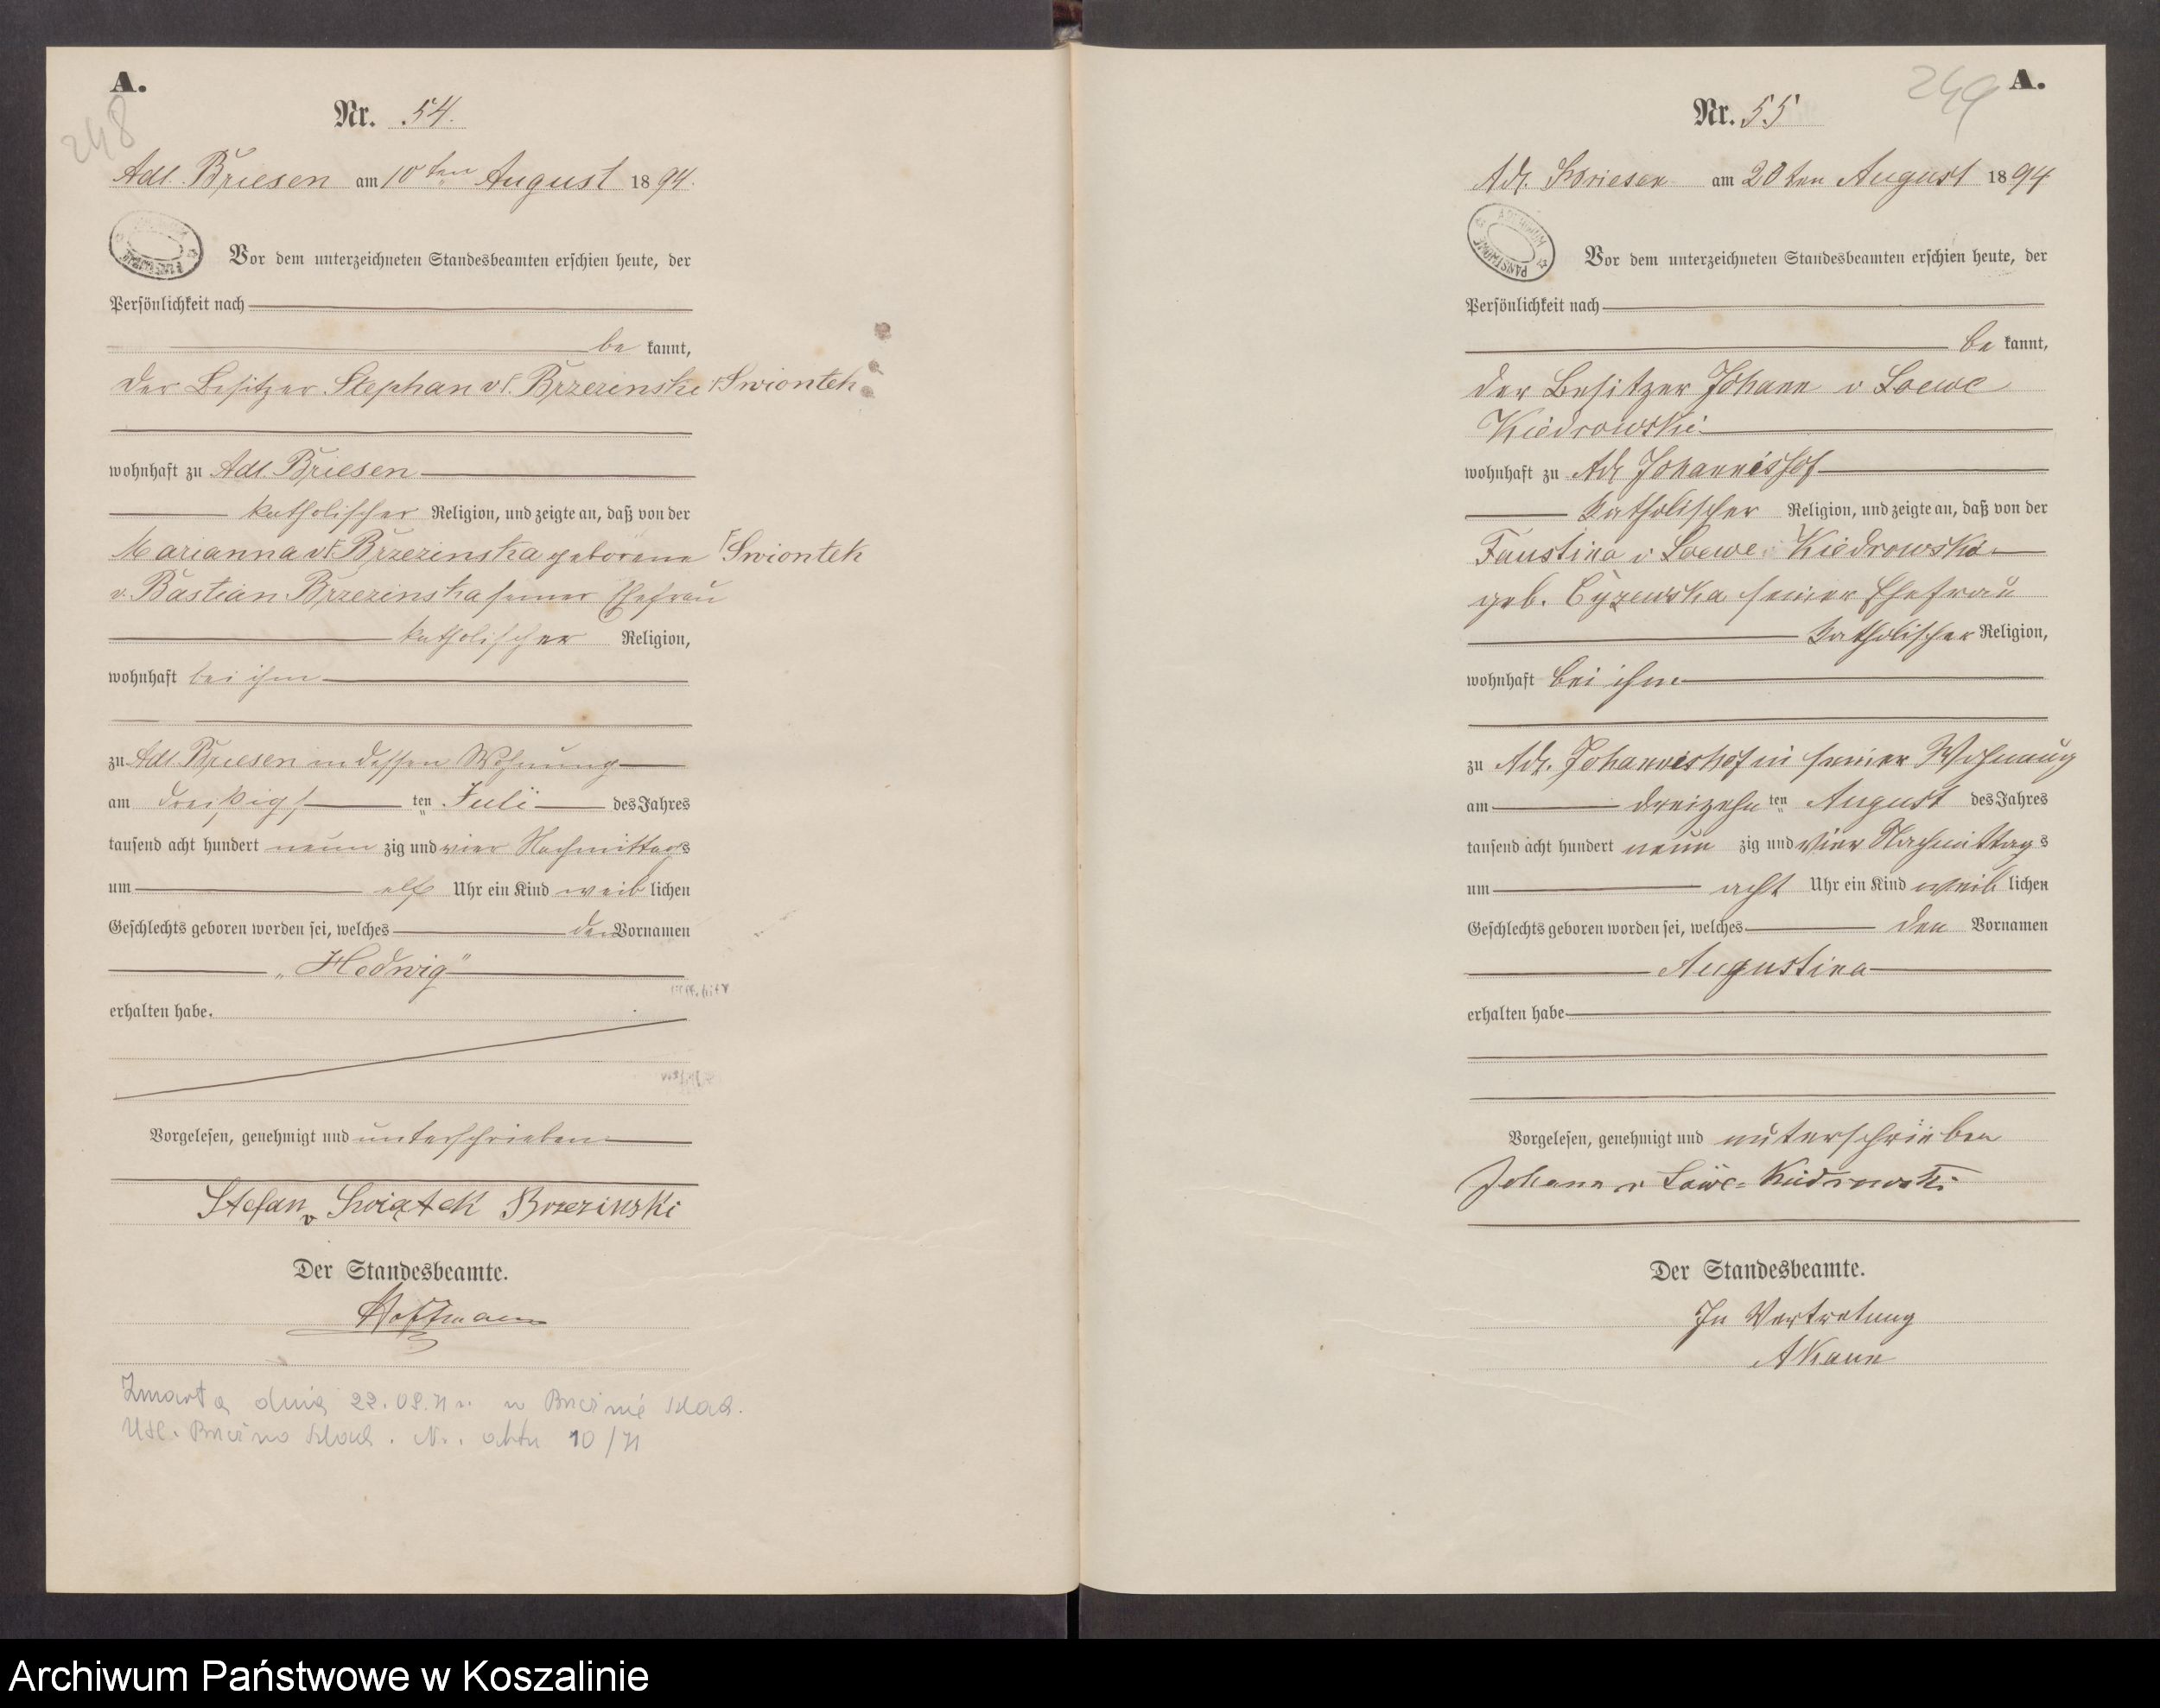 A.
248
Nr. 54.
Adl. Briesen am 10ten August 1894.
Vor dem unterzeichneten Standesbeamten erschien heute, der
Persönlichkeit nach
be kannt,
der Besitzer Stephan v. Brzezinski ⌈Swiontek
wohnhaft zu Adl. Briesen
katholischer Religion, und zeigte an, daß von der
Marianna v. Brzezinska geborene ⌈Swiontek
v. Bastian Brzezinska seiner Ehefrau
katholischer Religion,
wohnhaft bei ihm
zu Adl. Briesen in dessen Wohnung
am dreißigsten Juli des Jahres
tausend acht hundert neunzig und vier Nachmittags
um elf Uhr ein Kind weiblichen
Geschlechts geboren worden sei, welches den Vornamen
„Hedwig"
erhalten habe.
Vorgelesen, genehmigt und unterschrieben
Stefan v Swiątek Brzezinski
Der Standesbeamte.
Hoffmann
Zmarła dnia 22.08.71 r. w Brzeźnie Szlach.
USC. Brzeźno Szlach. Nr. aktu 10/71
249
A.
Nr. 55
Adl. Briesen am 20ten August 1894
ARCHIWUM PAŃSTWOWE
Vor dem unterzeichneten Standesbeamten erschien heute, der
Persönlichkeit nach
be kannt,
der Besitzer Johann v Loewe
Kiedrowski
wohnhaft zu Adl Johannishof
katholischer Religion, und zeigte an, daß von der
Faustina v Loewe Kiedrowski
geb. Cyzewska seiner Ehefrau
katholischer Religion,
wohnhaft bei ihm
zu Adl. Johannishof in seiner Wohnung
am dreizehnten August des Jahres
tausend acht hundert neunzig und vier Nachmittags
um acht Uhr ein Kind weiblichen
Geschlechts geboren worden sei, welches den Vornamen
Augustina
erhalten habe
Vorgelesen, genehmigt und unterschrieben
Johann v Löwe-Kiedrowski
Der Standesbeamte.
In Vertretung
A Kann
Archiwum Państwowe w Koszalinie